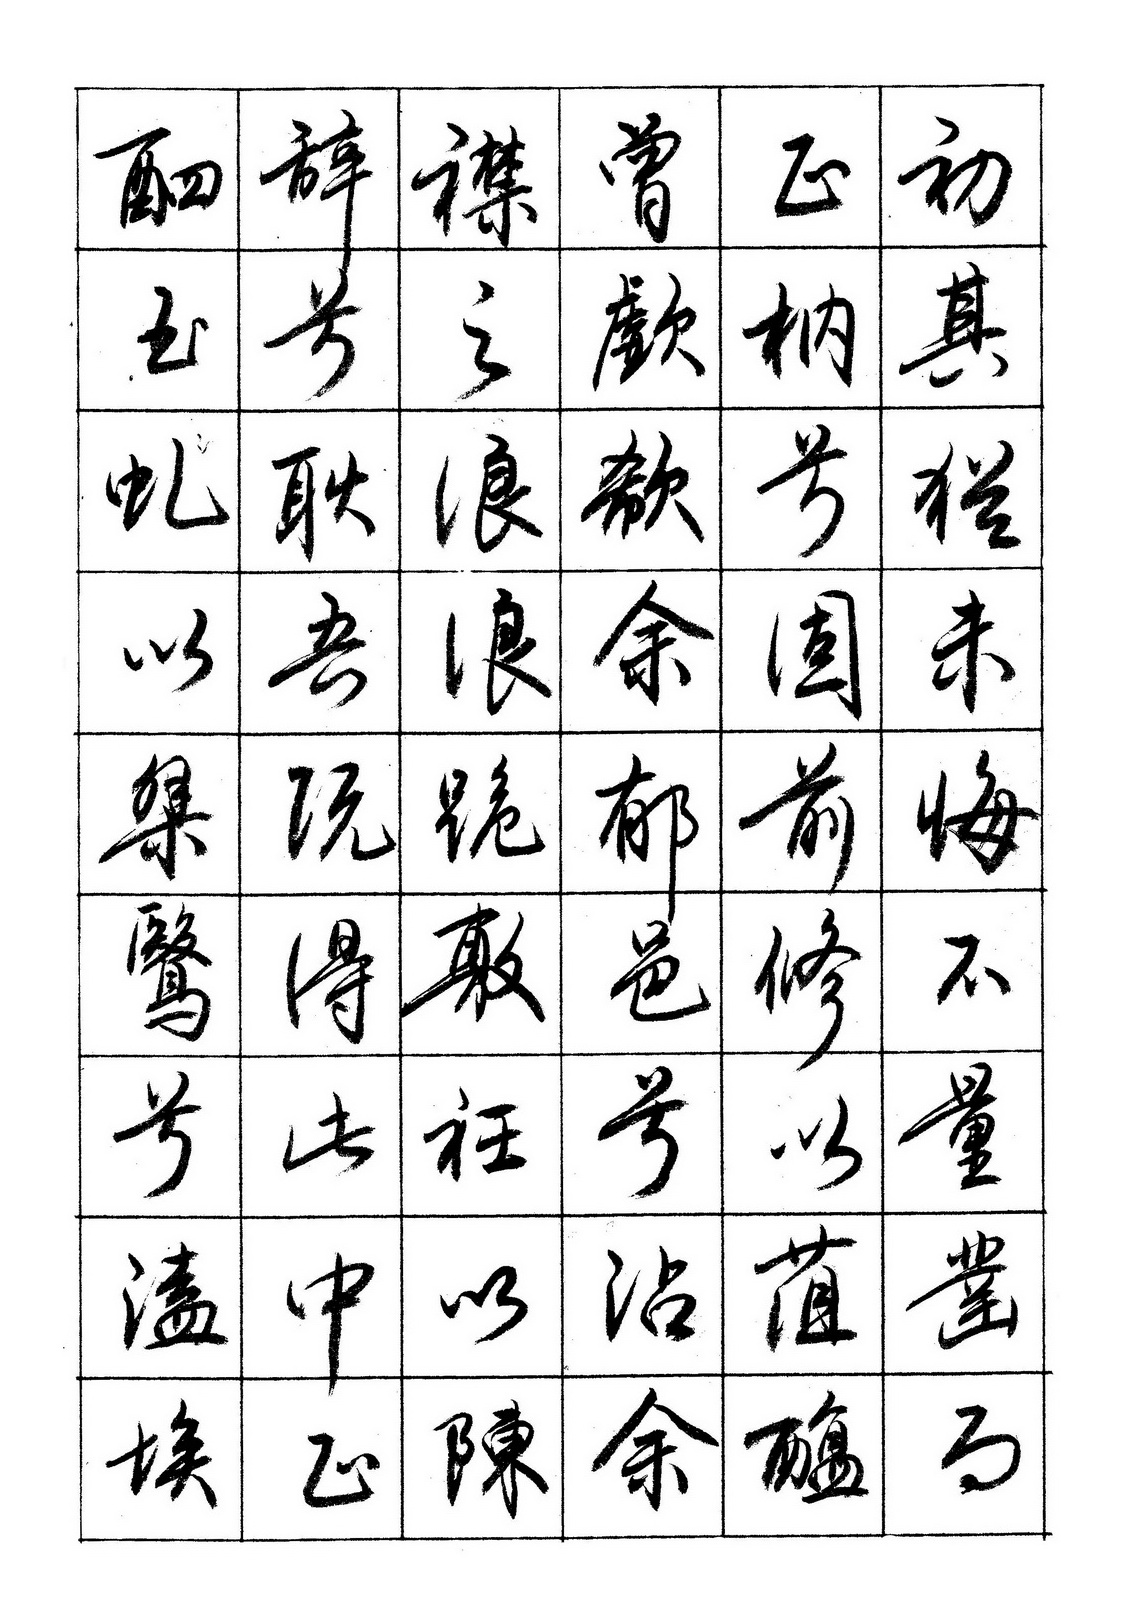 初其猶未悔不量凿而
正枘兮固前修以菹醢
曾歔欷余郁邑兮沾余
襟之浪浪跪敷衽以陳
辞兮耿吾既得此中正
駟玉虬以桀鷖兮溘埃